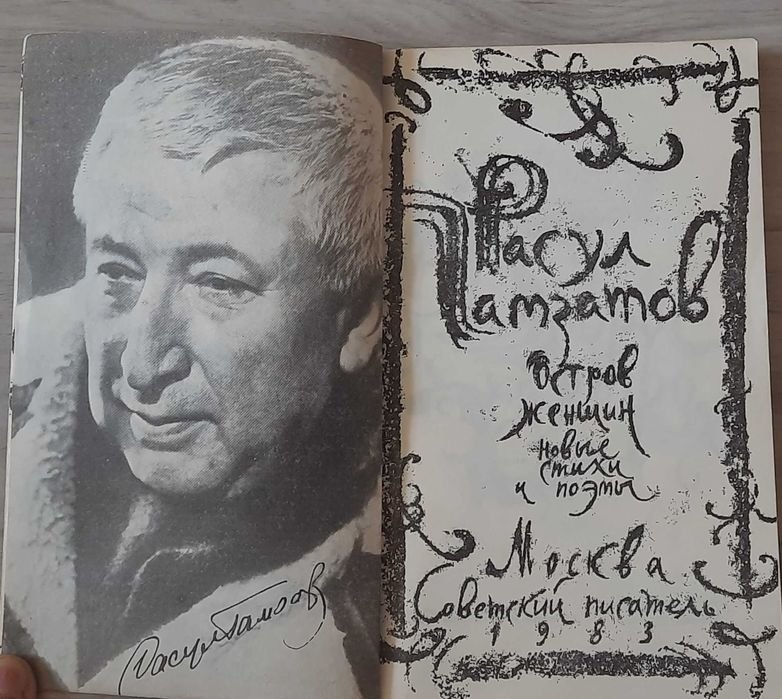 Расул Гамзатов
Расул
Гамзатов
остров
женщин
новые
стихи
и поэмы
Москва
Советский писатель
1983